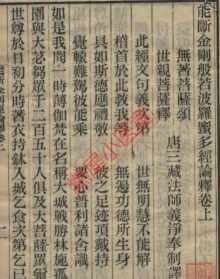 能斷金剛般若波羅蜜多經論釋卷上
無著菩薩頌
世親菩薩釋
唐三藏法師義淨奉制譯
此經文句義次第　世無明慧不能解
稽首於此教我等　無邊功德所生身
具如斯德應禮敬　彼之足跡頂戴持
覺轅難駕彼能乘　要心普利諸含識
如是我聞一時薄伽梵在名稱大城戰勝林施孤
園與大苾芻眾千二百五十人俱及大菩薩眾爾
世尊於日初分時著衣持鉢入城乞食次第乞已